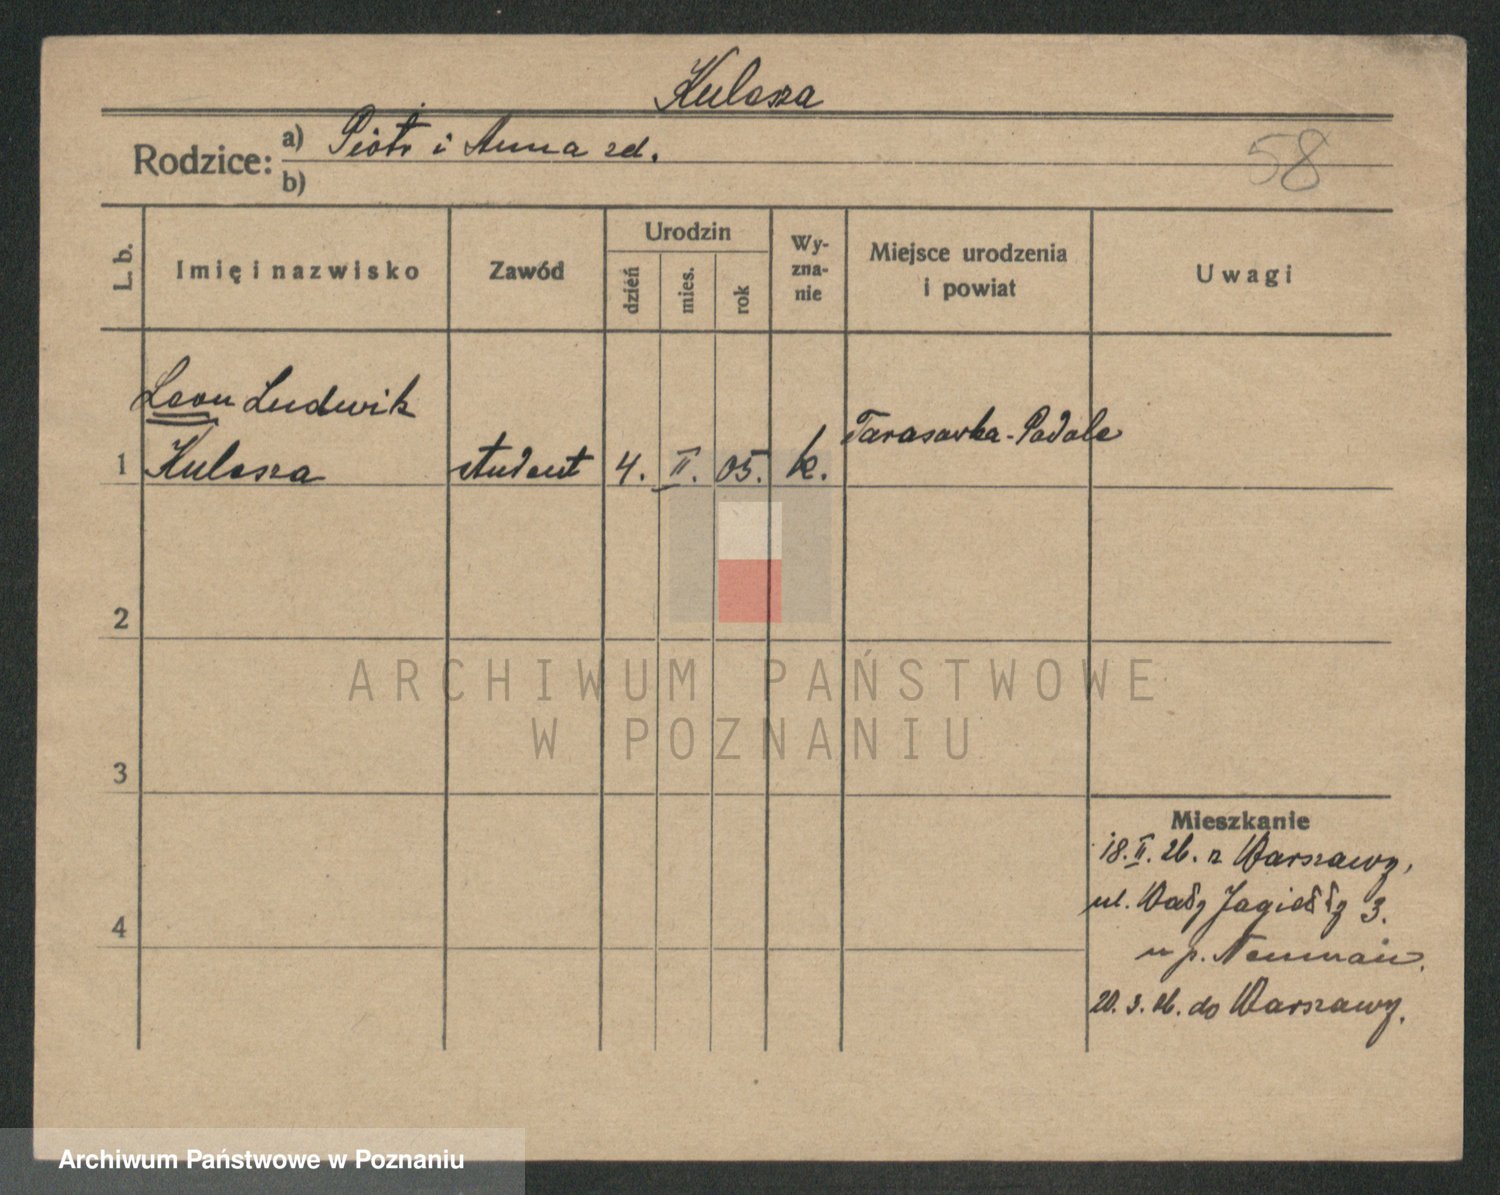 Kulesza
Rodzice:
a) Piotr i Anna zd.
b)
58
L. b.
Imię i nazwisko
Zawód
Urodzin
dzień
mies.
rok
Wy-
zna-
nie
Miejsce urodzenia
i powiat
Uwagi
Leon Ludwik
1 Kulesza student 4. II. 05. k. Tarasawka-Podole
2
3
4
Mieszkanie
18.II.26. z Warszawy,
ul. Wały Jagiełły 3.
u p. Neuman.
20.3.26. do Warszawy.
ARCHIWUM PAŃSTWOWE
W POZNANIU
Archiwum Państwowe w Poznaniu